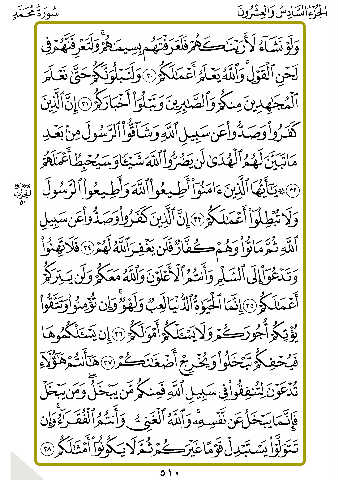 الجزء السادس والعشرون
سورة محمد
وَلَوْ نَشَآءُ لَأَرَيْنَٰكَهُمْ فَلَعَرَفْتَهُم بِسِيمَٰهُمْ ۚ وَلَتَعْرِفَنَّهُمْ فِى
لَحْنِ ٱلْقَوْلِ ۚ وَٱللَّهُ يَعْلَمُ أَعْمَٰلَكُمْ ٣٠ وَلَنَبْلُوَنَّكُمْ حَتَّىٰ نَعْلَمَ
ٱلْمُجَٰهِدِينَ مِنكُمْ وَٱلصَّٰبِرِينَ وَنَبْلُوَا۟ أَخْبَارَكُمْ ٣١ إِنَّ ٱلَّذِينَ
كَفَرُوا۟ وَصَدُّوا۟ عَن سَبِيلِ ٱللَّهِ وَشَآقُّوا۟ ٱلرَّسُولَ مِنۢ بَعْدِ
مَا تَبَيَّنَ لَهُمُ ٱلْهُدَىٰ لَن يَضُرُّوا۟ ٱللَّهَ شَيْـًٔا وَسَيُحْبِطُ أَعْمَٰلَهُمْ
٣٢ ۞ يَٰٓأَيُّهَا ٱلَّذِينَ ءَامَنُوٓا۟ أَطِيعُوا۟ ٱللَّهَ وَأَطِيعُوا۟ ٱلرَّسُولَ
وَلَا تُبْطِلُوٓا۟ أَعْمَٰلَكُمْ ٣٣ إِنَّ ٱلَّذِينَ كَفَرُوا۟ وَصَدُّوا۟ عَن سَبِيلِ
ٱللَّهِ ثُمَّ مَاتُوا۟ وَهُمْ كُفَّارٌ فَلَن يَغْفِرَ ٱللَّهُ لَهُمْ ٣٤ فَلَا تَهِنُوا۟
وَتَدْعُوٓا۟ إِلَى ٱلسَّلْمِ وَأَنتُمُ ٱلْأَعْلَوْنَ وَٱللَّهُ مَعَكُمْ وَلَن يَتِرَكُمْ
أَعْمَٰلَكُمْ ٣٥ إِنَّمَا ٱلْحَيَوٰةُ ٱلدُّنْيَا لَعِبٌ وَلَهْوٌ ۚ وَإِن تُؤْمِنُوا۟ وَتَتَّقُوا۟
يُؤْتِكُمْ أُجُورَكُمْ وَلَا يَسْـَٔلْكُمْ أَمْوَٰلَكُمْ ٣٦ إِن يَسْـَٔلْكُمُوهَا
فَيُحْفِكُمْ تَبْخَلُوا۟ وَيُخْرِجْ أَضْغَٰنَكُمْ ٣٧ هَٰٓأَنتُمْ هَٰٓؤُلَآءِ
تُدْعَوْنَ لِتُنفِقُوا۟ فِى سَبِيلِ ٱللَّهِ فَمِنكُم مَّن يَبْخَلُ ۖ وَمَن يَبْخَلْ
فَإِنَّمَا يَبْخَلُ عَن نَّفْسِهِۦ ۚ وَٱللَّهُ ٱلْغَنِىُّ وَأَنتُمُ ٱلْفُقَرَآءُ ۚ وَإِن
تَتَوَلَّوْا۟ يَسْتَبْدِلْ قَوْمًا غَيْرَكُمْ ثُمَّ لَا يَكُونُوٓا۟ أَمْثَٰلَكُم ٣٨
٥١٠